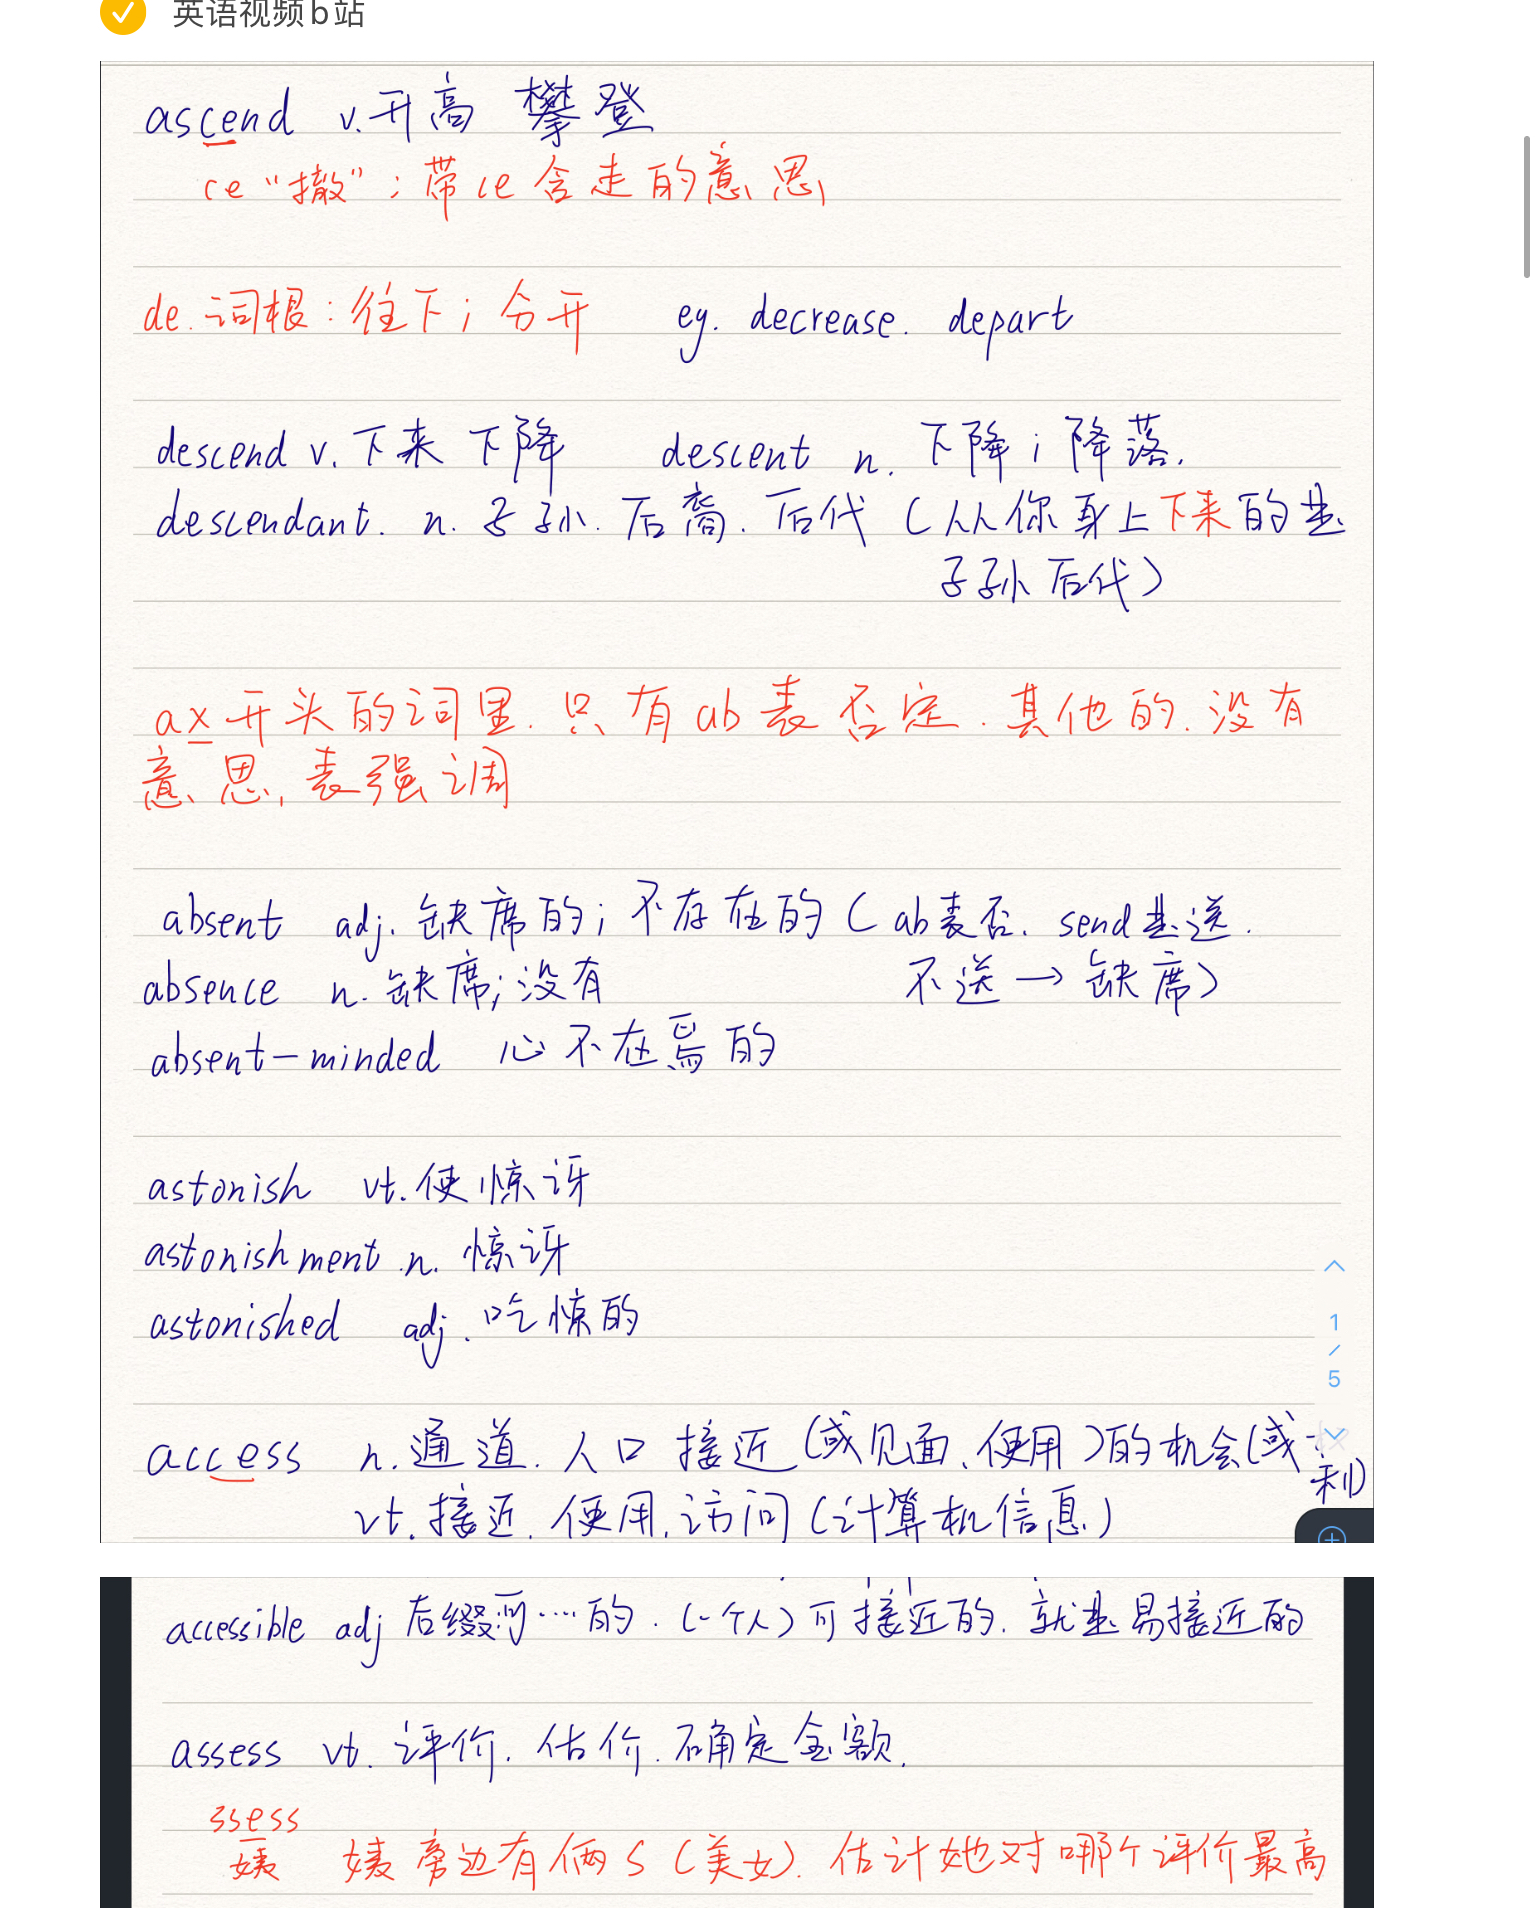 英语视频b站
ascend v.升高 攀登
ce“撤”:带ce含走的意思
de.词根:往下;分开 eg. decrease. depart
descend v.下来 下降 descent n. 下降;降落.
descendant. n.子孙.后裔.后代(从你身上下来的是
子孙后代)
ax开头的词里.只有ab表否定.其他的.没有
意思,表强调
absent adj.缺席的;不存在的(ab表否.send是送.
absence n.缺席;没有 不送→缺席)
absent-minded 心不在焉的
astonish vt.使惊讶
astonishment.n.惊讶
astonished adj.吃惊的
access n.通道.入口 接近(或见面、使用)的机会(或权
利)
vt.接近.使用.访问(计算机信息)
1
/
5
accessible adj 后缀:可…的.(一个人)可接近的.就是易接近的
assess vt.评价.估价.确定金额.
ssess
姨 姨旁边有俩S(美女).估计她对哪个评价最高